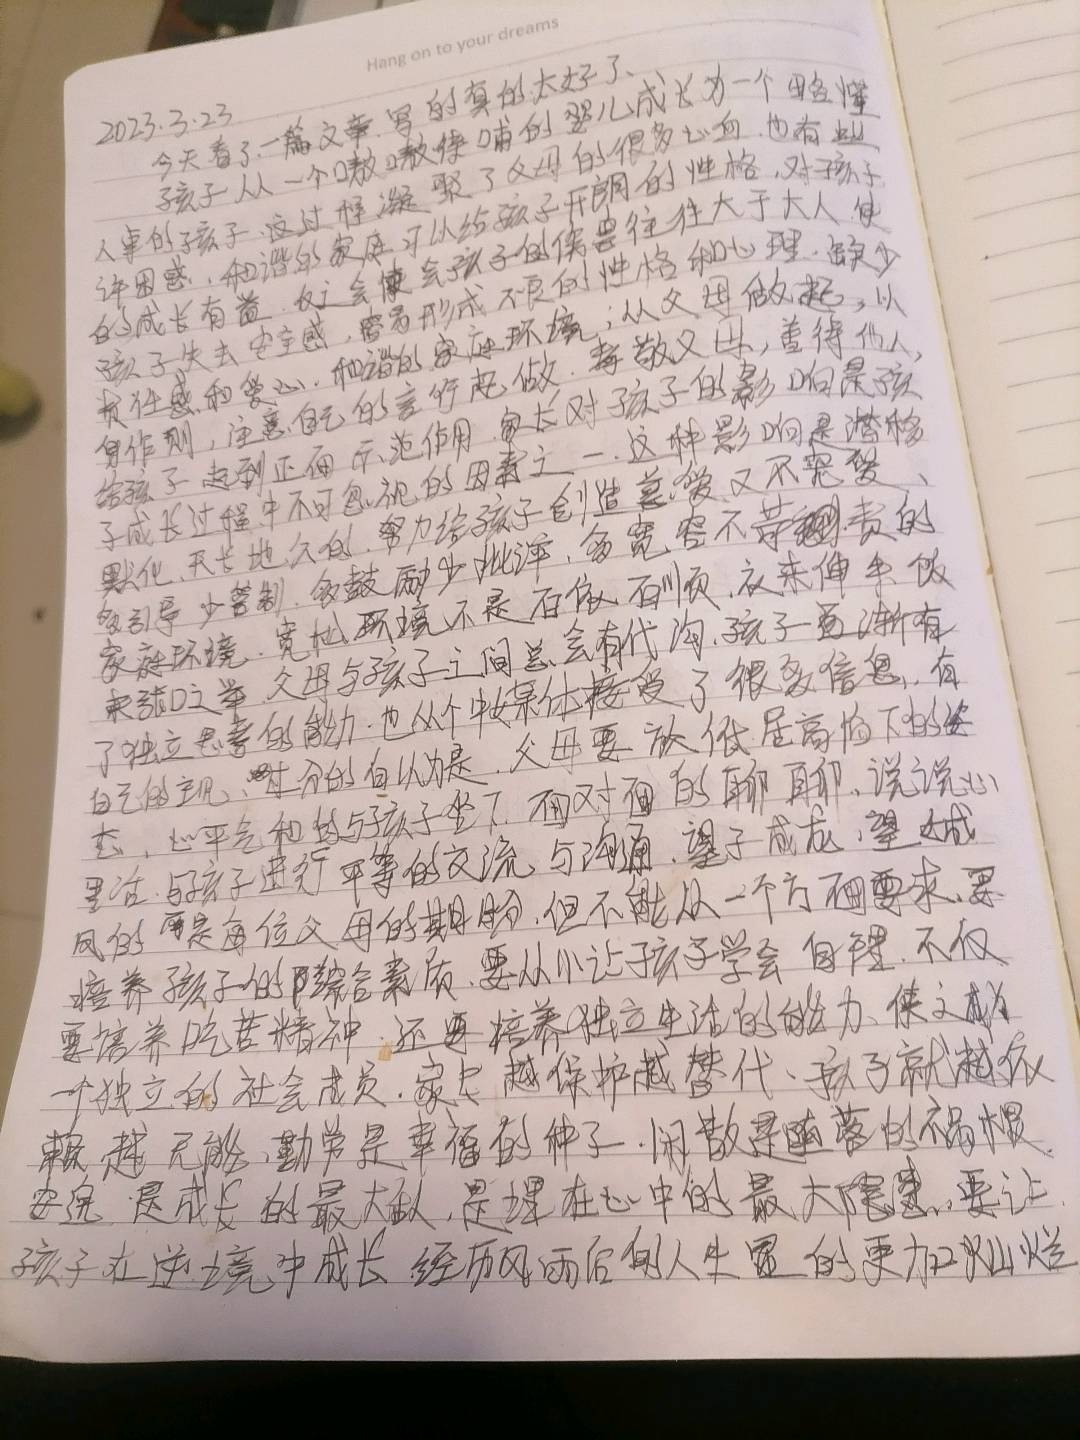 Hang on to your dreams
2023.3.23
今天看了一篇文章.写的真的太好了、
孩子从一个嗷嗷待哺的婴儿成长为一个略懂
人事的孩子.这过程凝聚了父母的很多心血.也有些
许困惑.和谐的家庭可以给孩子开朗的性格.对孩子
的成长有益.会使孩子的伤害往往大于大人.使
孩子失去安全感,容易形成不良的性格和心理.缺少
责任感和爱心.和谐的家庭环境;从父母做起,以
身作则,注意自己的言行起做.孝敬父母,善待他人,
给孩子起到正面示范作用.家长对孩子的影响是孩
子成长过程中不可忽视的因素之一.这种影响是潜移
默化、天长地久的.努力给孩子创造慈爱又不宠爱、
多引导少管制.多鼓励少批评,多宽容不苛责的
家庭环境.宽松环境不是百依百顺,衣来伸手饭
来张口之举.父母与孩子之间总会有代沟.孩子逐渐有
了独立思考的能力.也从个中媒体接受了很多信息.有
自己的主见、时分的自认为是.父母要放低居高临下的姿
态,心平气和的与孩子坐下.面对面的聊聊.说说心
里话.与孩子进行平等的交流与沟通.望子成龙,望女成
凤的是每位父母的期盼.但不能从一个方面要求.要
培养孩子的综合素质.要从小让孩子学会自理.不仅
要培养吃苦精神.还要培养独立生活的能力、使之成为
一个独立的社会成员.家长越保护越替代、孩子就越依
赖越无能.勤劳是幸福的种子.闲散是堕落的祸根
安逸是成长的最大敌,是埋在心中的最大隐患.要让
孩子在逆境中成长 经历风雨后的人生会的更加灿烂